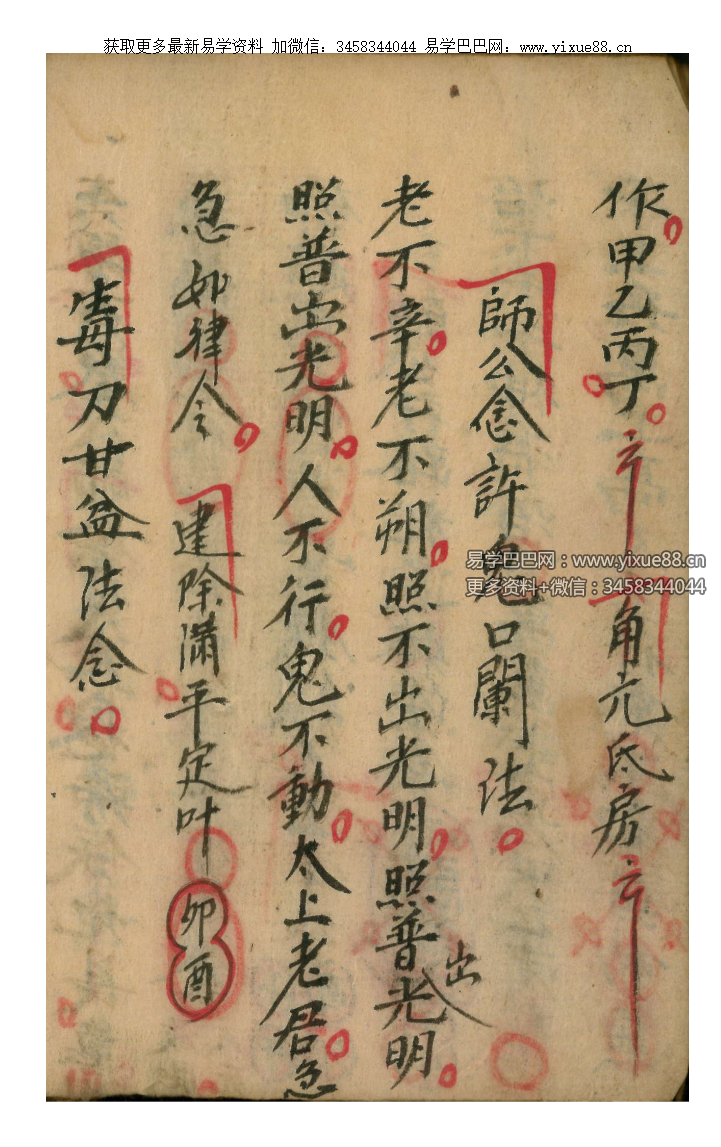 获取更多最新易学资料 加微信：3458344044 易学巴巴网：www.yixue88.cn
作甲乙丙丁 角亢氐房
師公念許鬼口闌法
老不辛老不朔照不出光明照普出光明
照普出光明人不行鬼不動太上老君急
急如律令 建除满平定叶 卯酉
毒刀甘益法念
易学巴巴网：www.yixue88.cn
更多资料+微信：3458344044